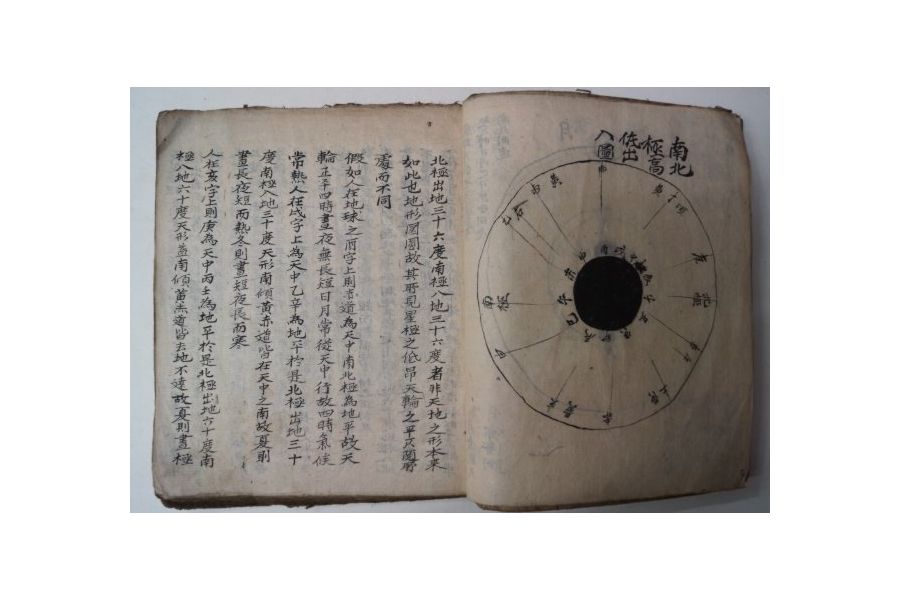 南北
極高
低出
入圖
南極
北極出地三十六度南極入地三十六度者非天地之形本來
如此也地形圓圓故其所見星極之低昂天輪之平仄隨所
處而不同
假如人在地球之酉字上則赤道為天中南北極為地平故天
輪正平四時晝夜無長短日月常從天中行故四時氣候
常熱人在戌字上為天中乙辛為地平於是北極出地三十
度南極入地三十度天形南傾黃赤道皆在天中之南故夏則
晝長夜短而熱冬則晝短夜長而寒
人在亥字上則庚為天中丙壬為地平於是北極出地六十度南
極入地六十度天形益南傾黃赤道皆去地不遠故夏則晝極